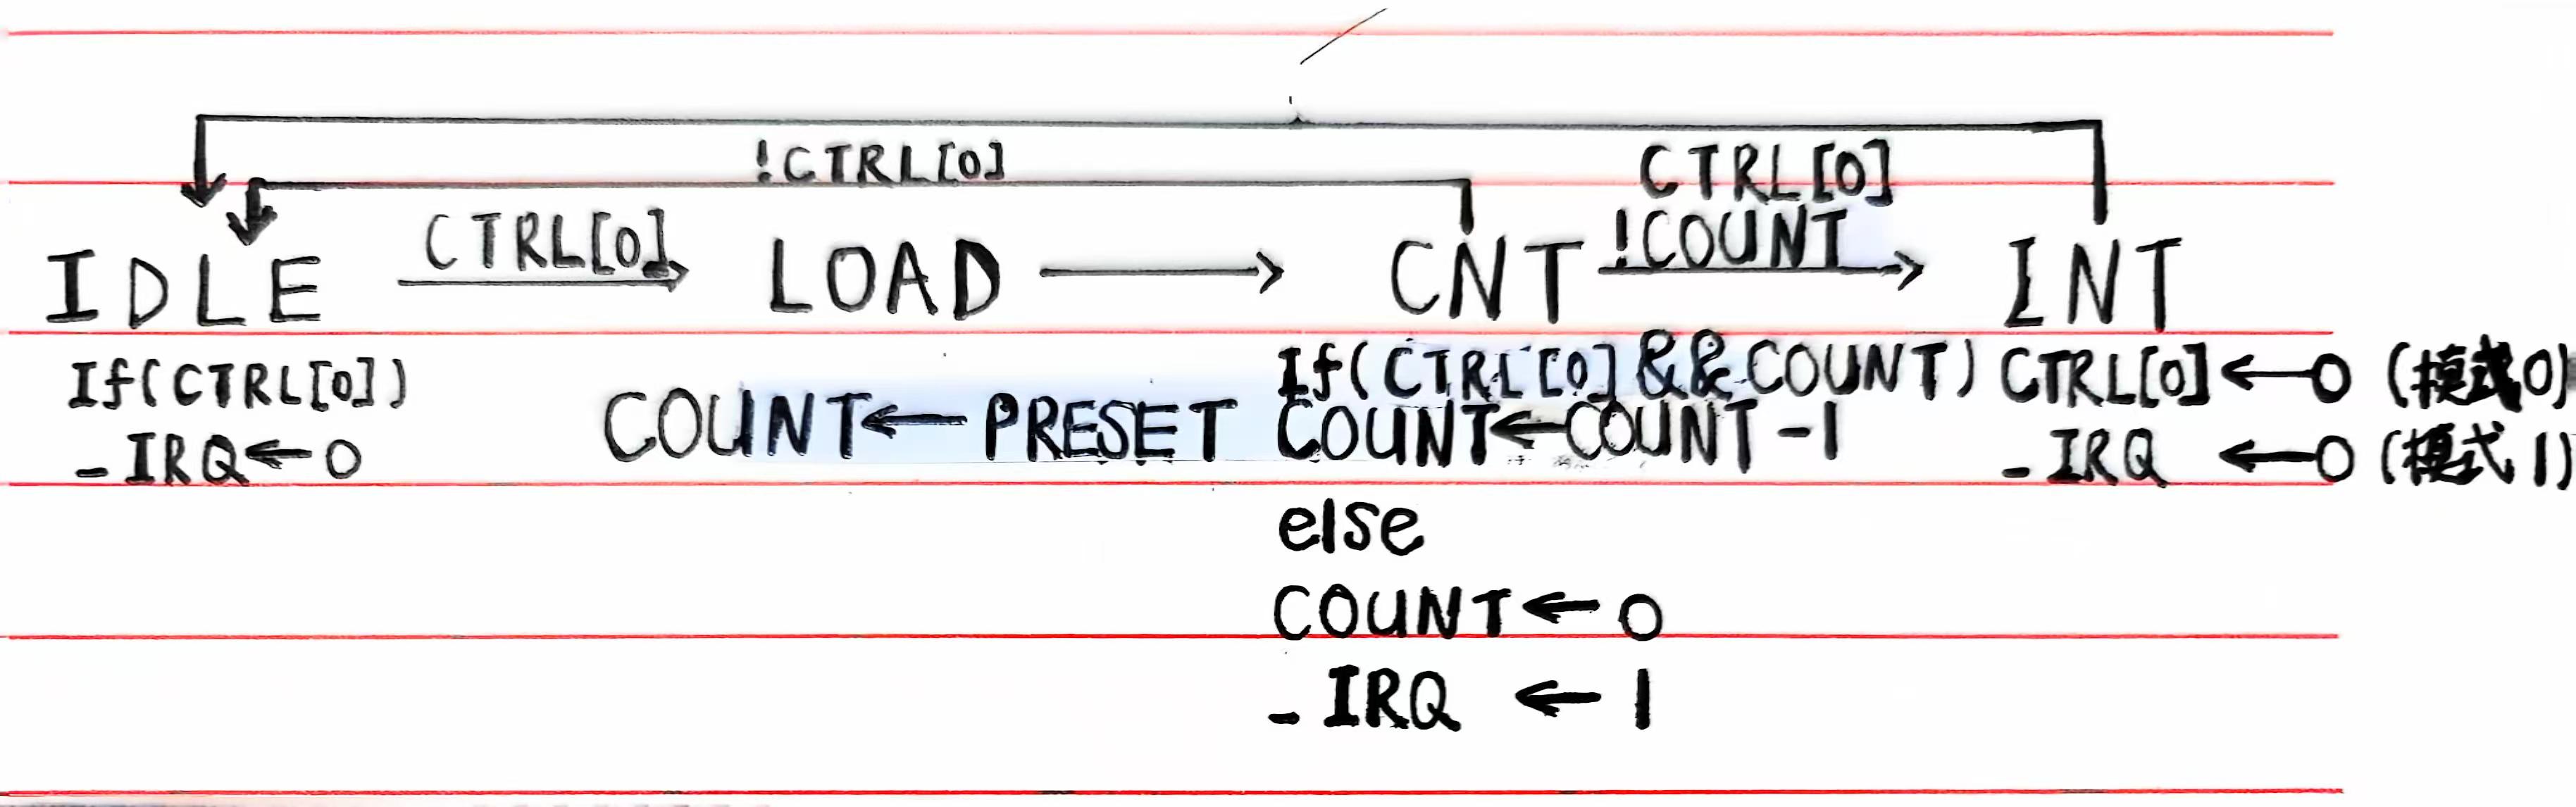 !CTRL[0]
CTRL[0]
IDLE CTRL[0] LOAD CNT !COUNT INT
If(CTRL[0])
_IRQ←0
COUNT←PRESET
If(CTRL[0]&&COUNT)
COUNT←COUNT-1
else
COUNT←0
_IRQ←1
CTRL[0]←0(模式0)
_IRQ←0(模式1)